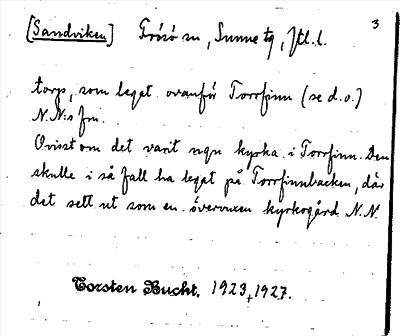 [Sandviken] Frösö sn, Sunne tg, Jtl. l. 3
torp, som leget ovanför Torrfinn (se d.o.)
N.N:s fm.
Ovisst om det varit ngn kyrka i Torrfinn. Den
skulle i så fall ha legat på Torrfinnbacken, där
det sett ut som en övervuxen kyrkogård. N.N.
Torsten Bucht. 1923, 1927.